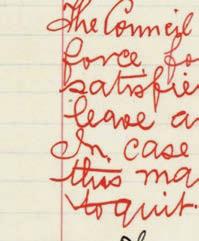 The Council
force fo
satisfie
leave a
In case
this ma
to quit.